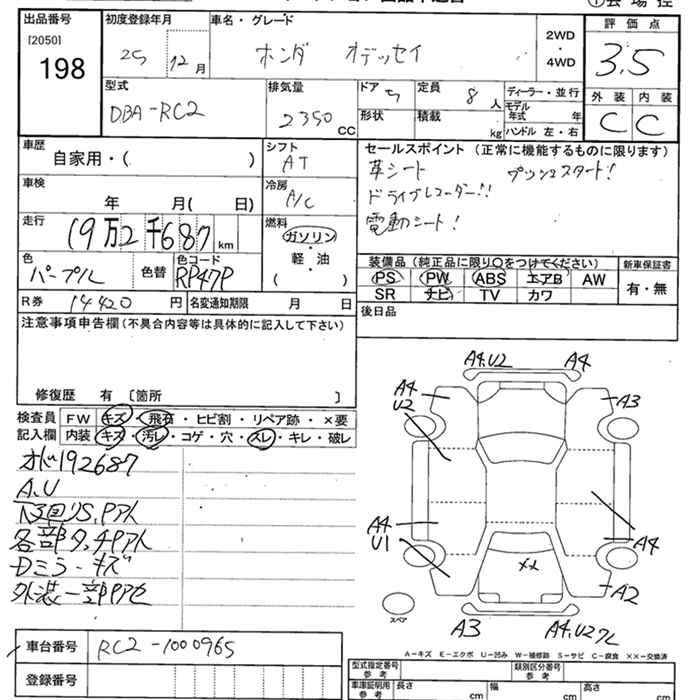 出品番号
[2050]
198
初度登録年月
25 12月
車名・グレード
ホンダ オデッセイ
2WD
・
4WD
評価点
3.5
外装 内装
C C
型式
DBA-RC2
排気量
2350 CC
ドア 5
定員 8人
形状
積載 kg
ディーラー・並行
モデル年式 年
ハンドル 左・右
車歴
自家用・( )
シフト
AT
セールスポイント (正常に機能するものに限ります)
革シート プッシュスタート!
ドライブレコーダー!!
電動シート!
車検
年 月( 日)
冷房
A/C
走行
19万2千687km
燃料
ガソリン
・
軽・油
( )
色
パープル
色替
色コード
RP47P
装備品(純正品に限り○をつけてください)
PS PW ABS エアB AW
SR ナビ TV カワ
新車保証書
有・無
R券 14420円
名変通知期限 月 日
後日品
注意事項申告欄(不具合内容等は具体的に記入して下さい)
修復歴 有 〔箇所 〕
検査員
記入欄
FW キズ・飛石・ヒビ割・リペア跡・×要
内装 キズ・汚レ・コゲ・穴・スレ・キレ・破レ
192687
A.U
各部
キズ
外装一部
A4.U2 A4
A4
U2
A3
A4
U1
A4
××
A2
スペア
A3
A4.U2
A-キズ E-エクボ U-凹み W-補修跡 S-サビ C-腐食 ××-交換済
車台番号 RC2-1000965
登録番号
型式指定番号
参考
類別区分番号
参考
車庫証明用
参考
長さ cm
幅 cm
高さ cm